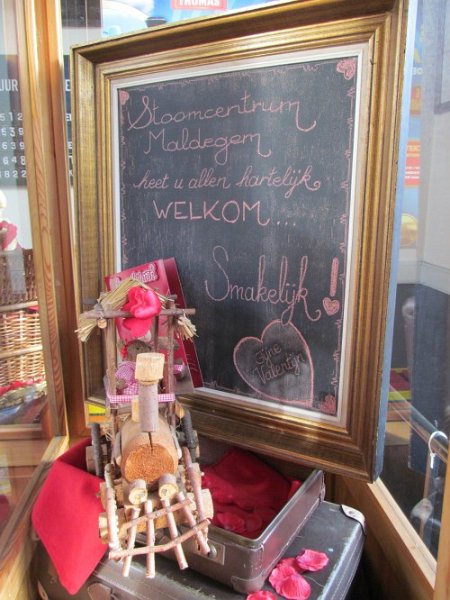 THOMAS
Stoomcentrum
Maldegem
heet u allen hartelijk
WELKOM...
Smakelijk!
Fijne
Valentijn